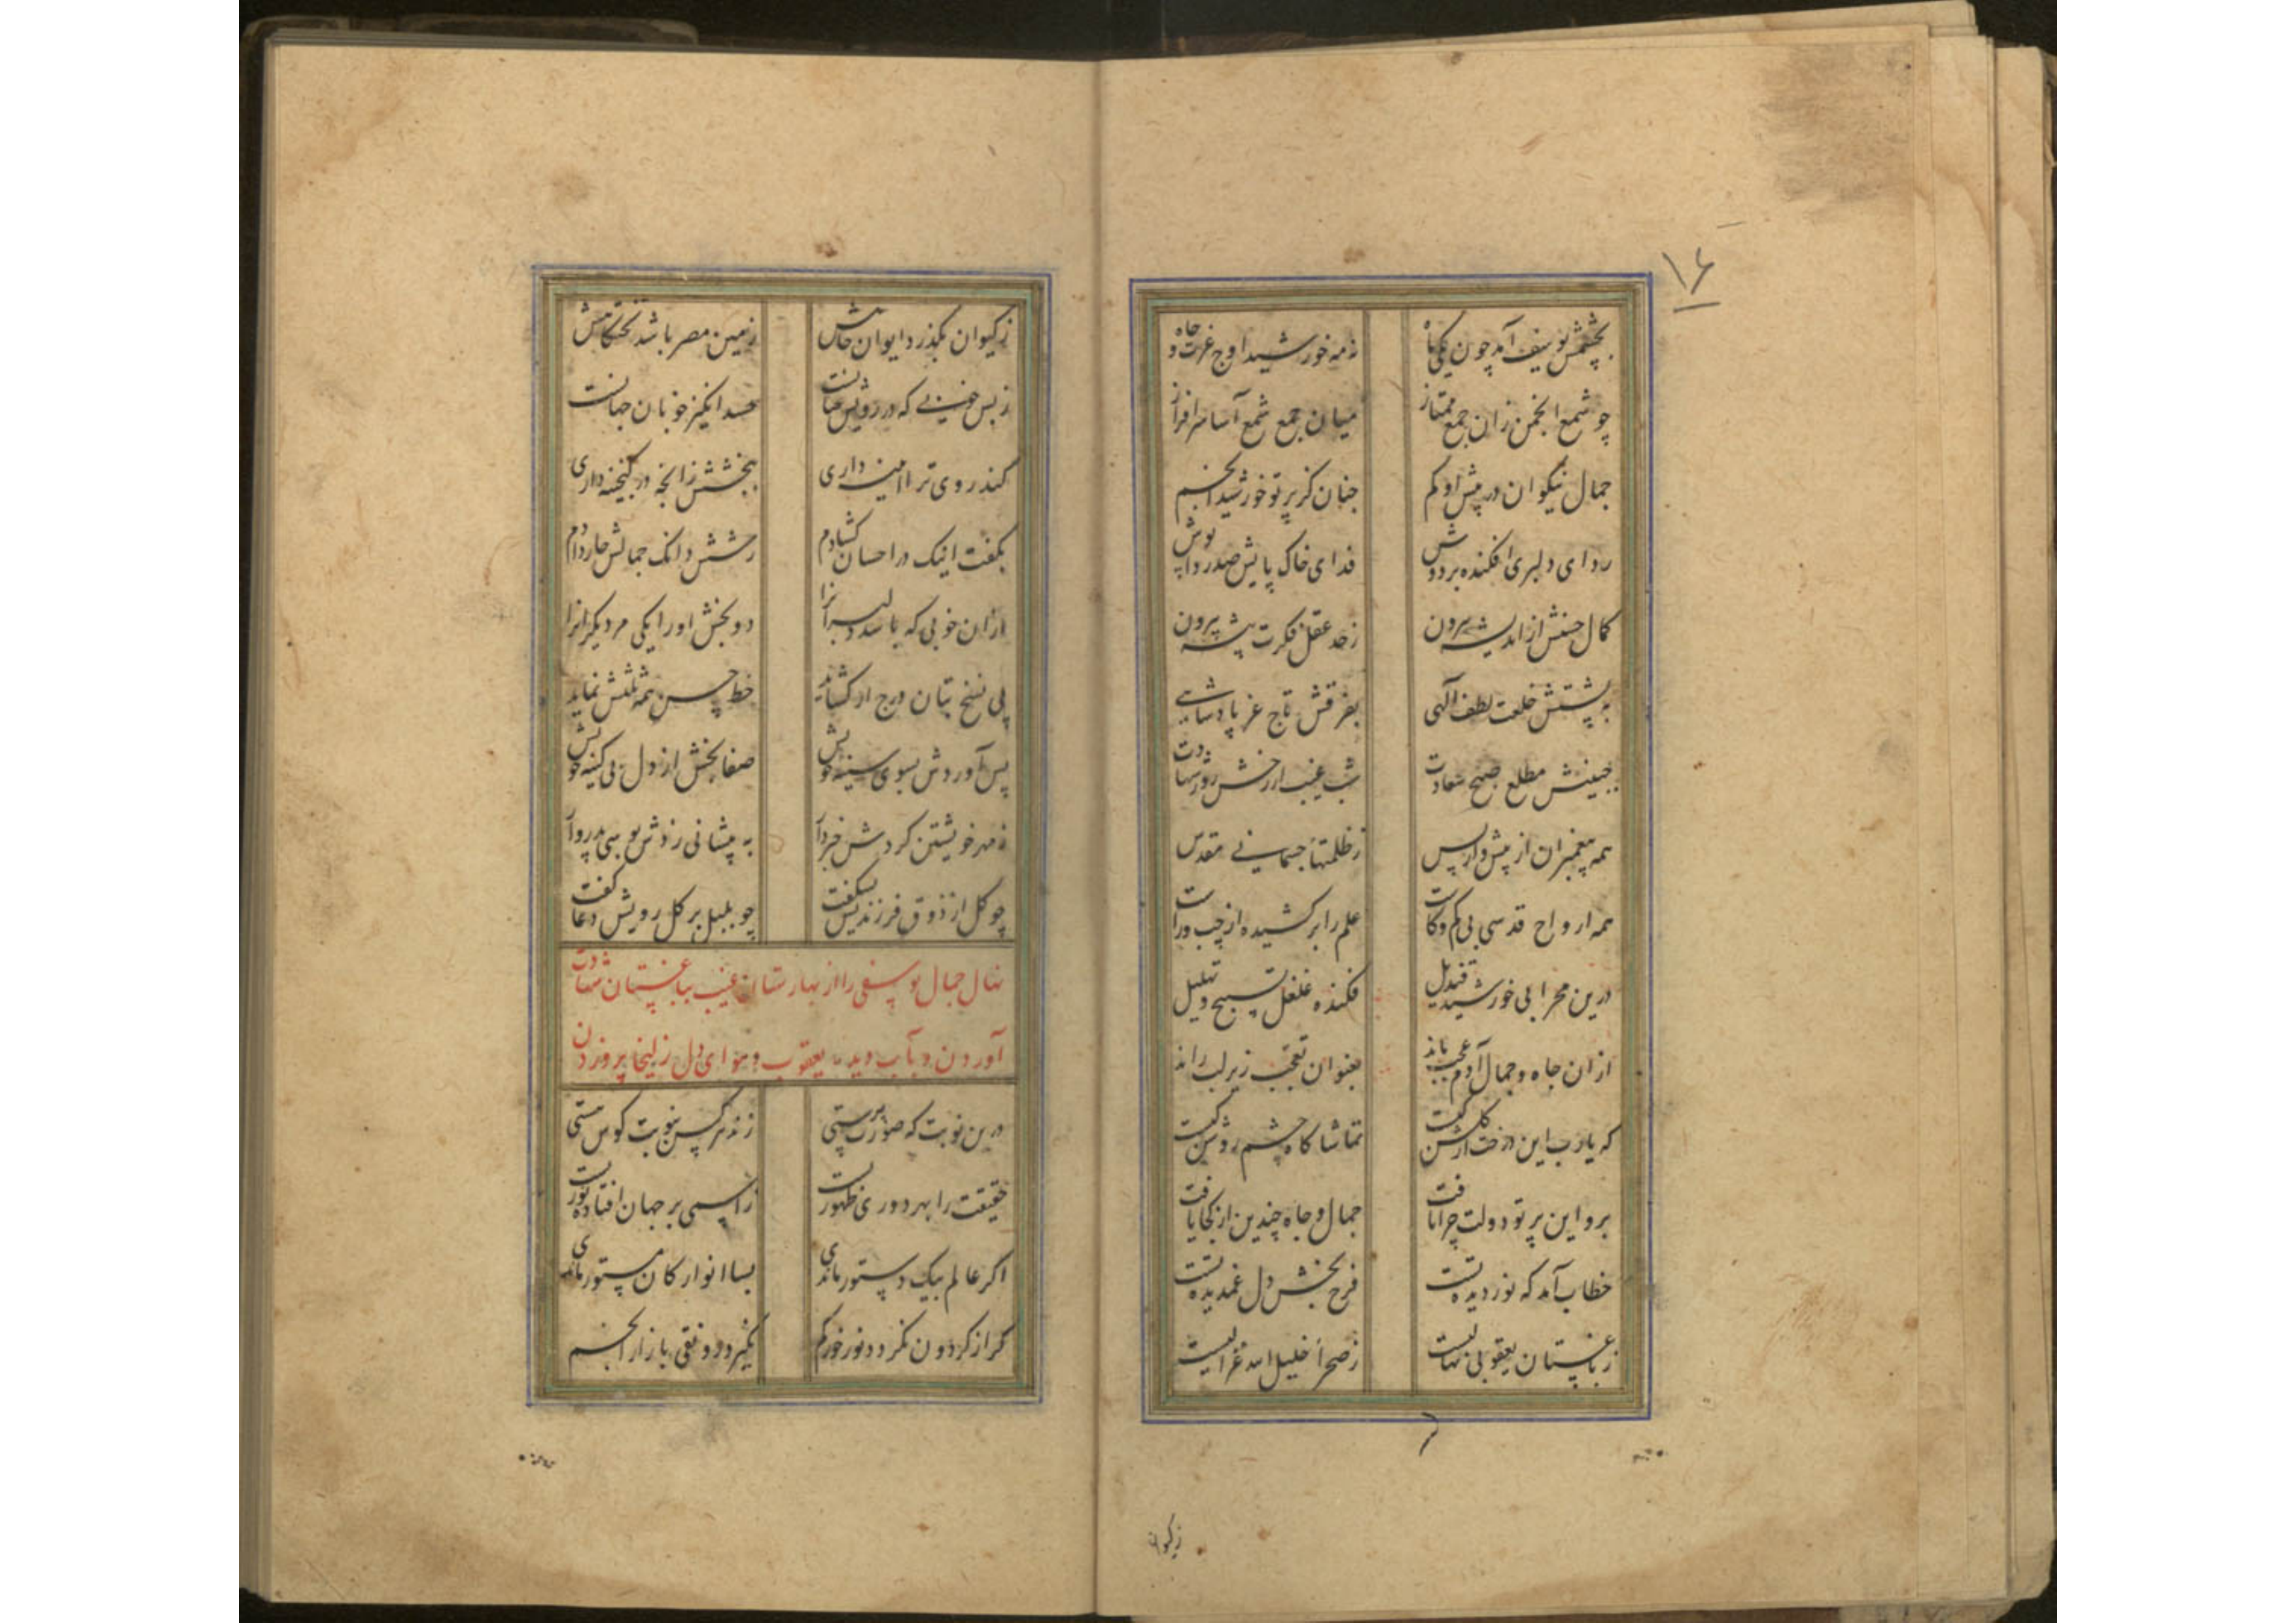 ۱۶
بچشمش یوسف آمد چون یکی ماه نه مه خورشید اوج عزت و جاه
چو شمع انجمن زان جمع ممتاز میان جمع شمع آسا سرافراز
جمال نیکوان در پیش او کم چنان کز پرتو خورشید انجم
ردای دلبری افکنده بر دوش فدای خاک پایش صد ردا پوش
کمال حسنش از اندیشه بیرون ز حد عقل فکرت پیشه بیرون
به پشتش خلعت لطف الهی بفرقش تاج عز پادشاهی
جبینش مطلع صبح سعادت شب غیب از رخش روز شهادت
همه پیغمبران از پیش و از پس ز ظلمتهاء جسمانی مقدس
همه ارواح قدسی بی کم و کاست علم را بر کشیده از چپ و راست
درین محرابی خورشید قندیل فکنده غلغل تسبیح و تهلیل
ازان جاه و جمال آدم عجب ماند بعنوان تعجب زیر لب راند
که یارب این درخت از گلشن کیست تماشا گاه چشم روشن کیست
برو این پرتو دولت چرا تافت جمال و جاه چندین از کجا یافت
خطاب آمد که نور دیده تست فرح بخش دل غمدیده تست
ز باغستان یعقوبی نهالیست ز صحرا خلیل الله غزالیست
زکیوان
ز کیوان بگذرد ایوان جاهش زمین مصر باشد تختگاهش
ز بس خوبی که در رویش عیانست حسد انگیز خوبان جهانست
کند روی ترا آیینه داری ببخشش زانچه در گنجینه داری
بگفت اینک در احسان گشادم ز شش دانگ جمالش چار دادم
ازان خوبی که باشد دلبرانرا دو بخش او را یکی مر دیگرانرا
پی نسخ بتان درج ار گشاید خط حسن همه ثلثش نماید
پس آوردش بسوی سینه خویش صفا بخش از دل بی کینه خویش
ز مهر خویشتن کردش خبردار به پیشانی زدش بوسی پدروار
چو گل از ذوق فرزندیش بشکفت چو بلبل بر گل رویش دعا گفت
نهال جمال یوسفی را از بهارستان غیب بباغستان شهادت
آوردن و بآب دیده یعقوب و هوای دل زلیخا پروردن
درین نوبت که صورت پرستی زند هر کس بنوبت کوس هستی
حقیقت را بهر دوری ظهوریست ز اسمی بر جهان افتاده نوریست
اگر عالم بیک دستور ماندی بسا انوار کان مستور ماندی
گر از گردون نگردد نور خور گم نگیرد رونقی بازار انجم